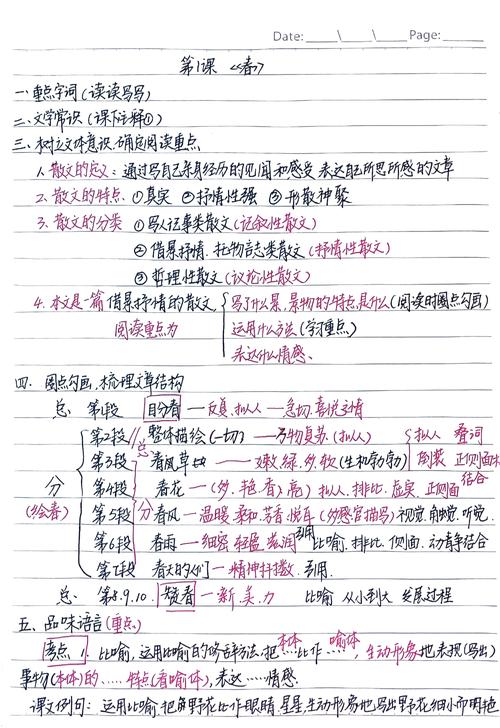 Date: \ \ Page:
第1课 《春》
一、重点字词(读读写写)
二、文学常识(课下注释①)
三、树立文体意识,确定阅读重点
1.散文的定义:通过写自己亲身经历的见闻和感受,表达自己所思所感的文章
2.散文的特点:①真实 ②抒情性强 ③形散神聚
3.散文的分类 ①写人记事类散文(记叙性散文)
②借景抒情、托物言志类散文(抒情性散文)
③哲理性散文(议论性散文)
4.本文是一篇借景抒情的散文 写了什么景,景物的特点是什么(阅读时圈点勾画)
阅读重点为 运用什么方法(学习重点)
表达什么情感、
四、圈点勾画,梳理文章结构
总 第1段 盼春 — 反复、拟人 — 急切、喜悦之情
第2段 总 整体描绘(一切) — 万物复苏(拟人) 拟人 叠词
第3段 春风草 — 嫩、绿、多、软(生机勃勃) 倒装 正侧面结合
分 第4段 春花 — (多、艳、香、亮) 拟人、排比、虚实、正侧面
(绘春) 第5段 分 春风 — 温暖 柔和 芳香 悦耳(多感官描写)视觉、触觉、听觉
第6段 春雨 — 细密 轻盈 滋润 比喻、排比、侧面、动静结合
第7段 春天的人们 — 精神抖擞
总 第8.9.10. 赞春 — 新 美 力 比喻 从小到大 发展过程
五、品味语言(重点)
考点1. 比喻,运用比喻的修辞方法,把本体比作喻体,生动形象地表现(写出)
事物(本体)的……特点(看喻体),表达……情感.
课文例句:运用比喻,把野花比作眼睛、星星,生动形象地写出野花细小而明艳